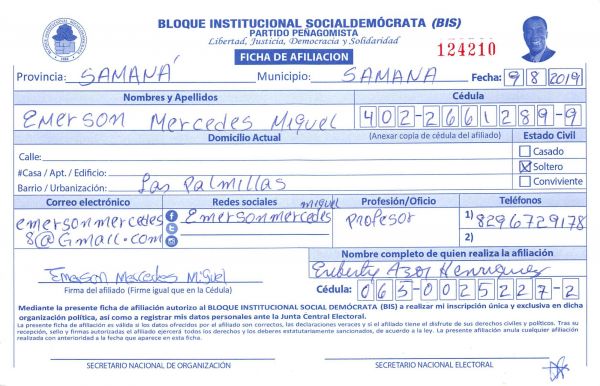 BLOQUE INSTITUCIONAL SOCIALDEMÓCRATA (BIS)
PARTIDO PEÑAGOMISTA
Libertad, Justicia, Democracia y Solidaridad
FICHA DE AFILIACION
124210
Provincia: SAMANÁ Municipio: SAMANA Fecha: 9 8 2019
Nombres y Apellidos Cédula
Emerson Mercedes Miguel 402-2661289-9
Domicilio Actual (Anexar copia de cédula del afiliado) Estado Civil
Calle: Casado
#Casa / Apt. / Edificio: Soltero
Barrio / Urbanización: Las Palmillas Conviviente
Correo electrónico Redes sociales Profesión/Oficio Teléfonos
emersonmercedes
8@Gmail.com
Emersonmercedes
miguel
Profesor
1) 8296729178
2)
Nombre completo de quien realiza la afiliación
Emerson Mercedes Miguel
Firma del afiliado (Firme igual que en la Cédula)
Azor Henriquez
Cédula: 065-0025227-2
Mediante la presente ficha de afiliación autorizo al BLOQUE INSTITUCIONAL SOCIAL DEMÓCRATA (BIS) a realizar mi inscripción única y exclusiva en dicha
organización política, así como a registrar mis datos personales ante la Junta Central Electoral.
La presente ficha de afiliación es válida si los datos ofrecidos por el afiliado son correctos, las declaraciones veraces y si el afiliado tiene el disfrute de sus derechos civiles y políticos. Tras su
recepción, sello y firmas autorizadas el afiliado ejercerá todos los derechos y los deberes estatutariamente sancionados, de acuerdo a la ley. La presente afiliación anula cualquier afiliación
realizada con anterioridad a la fecha que aparece en esta ficha.
SECRETARIO NACIONAL DE ORGANIZACIÓN SECRETARIO NACIONAL ELECTORAL